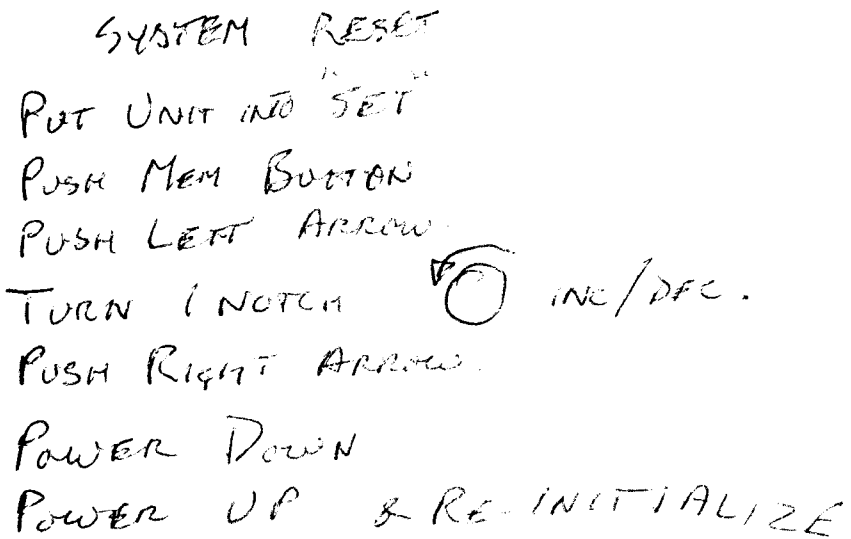 SYSTEM RESET
PUT UNIT INTO "SET"
PUSH MEM BUTTON
PUSH LEFT ARROW.
TURN 1 NOTCH INC/DEC.
PUSH RIGHT ARROW.
POWER DOWN
POWER UP & RE-INITIALIZE